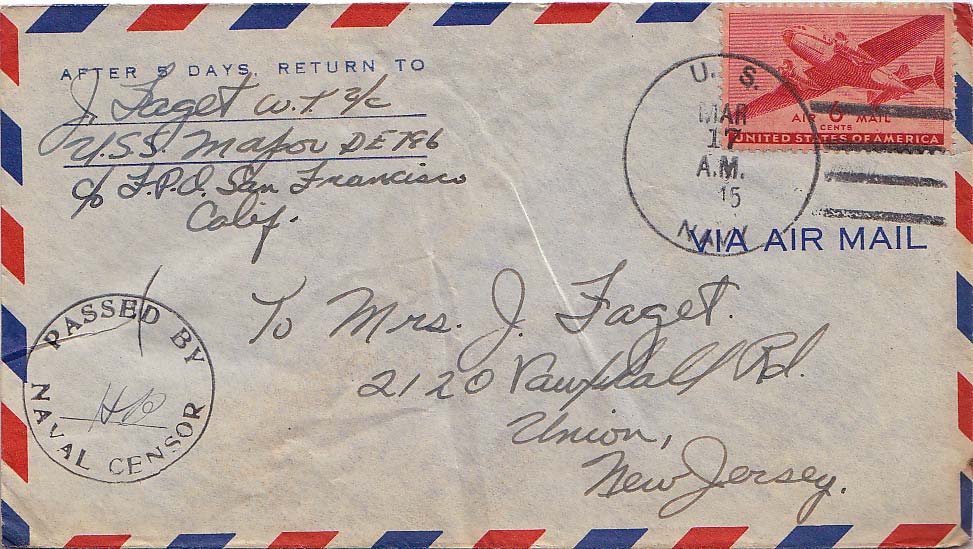 AFTER 5 DAYS, RETURN TO
J. Faget W.T. 2/c
U.S.S. Major DE 796
c/o F.P.O. San Francisco
Calif.
U. S.
MAR
17
A.M.
NAVY
AIR 6 MAIL
CENTS
UNITED STATES OF AMERICA
VIA AIR MAIL
PASSED BY
NAVAL CENSOR
To Mrs. J. Faget.
2120 Vauxhall Rd.
Union,
New Jersey.